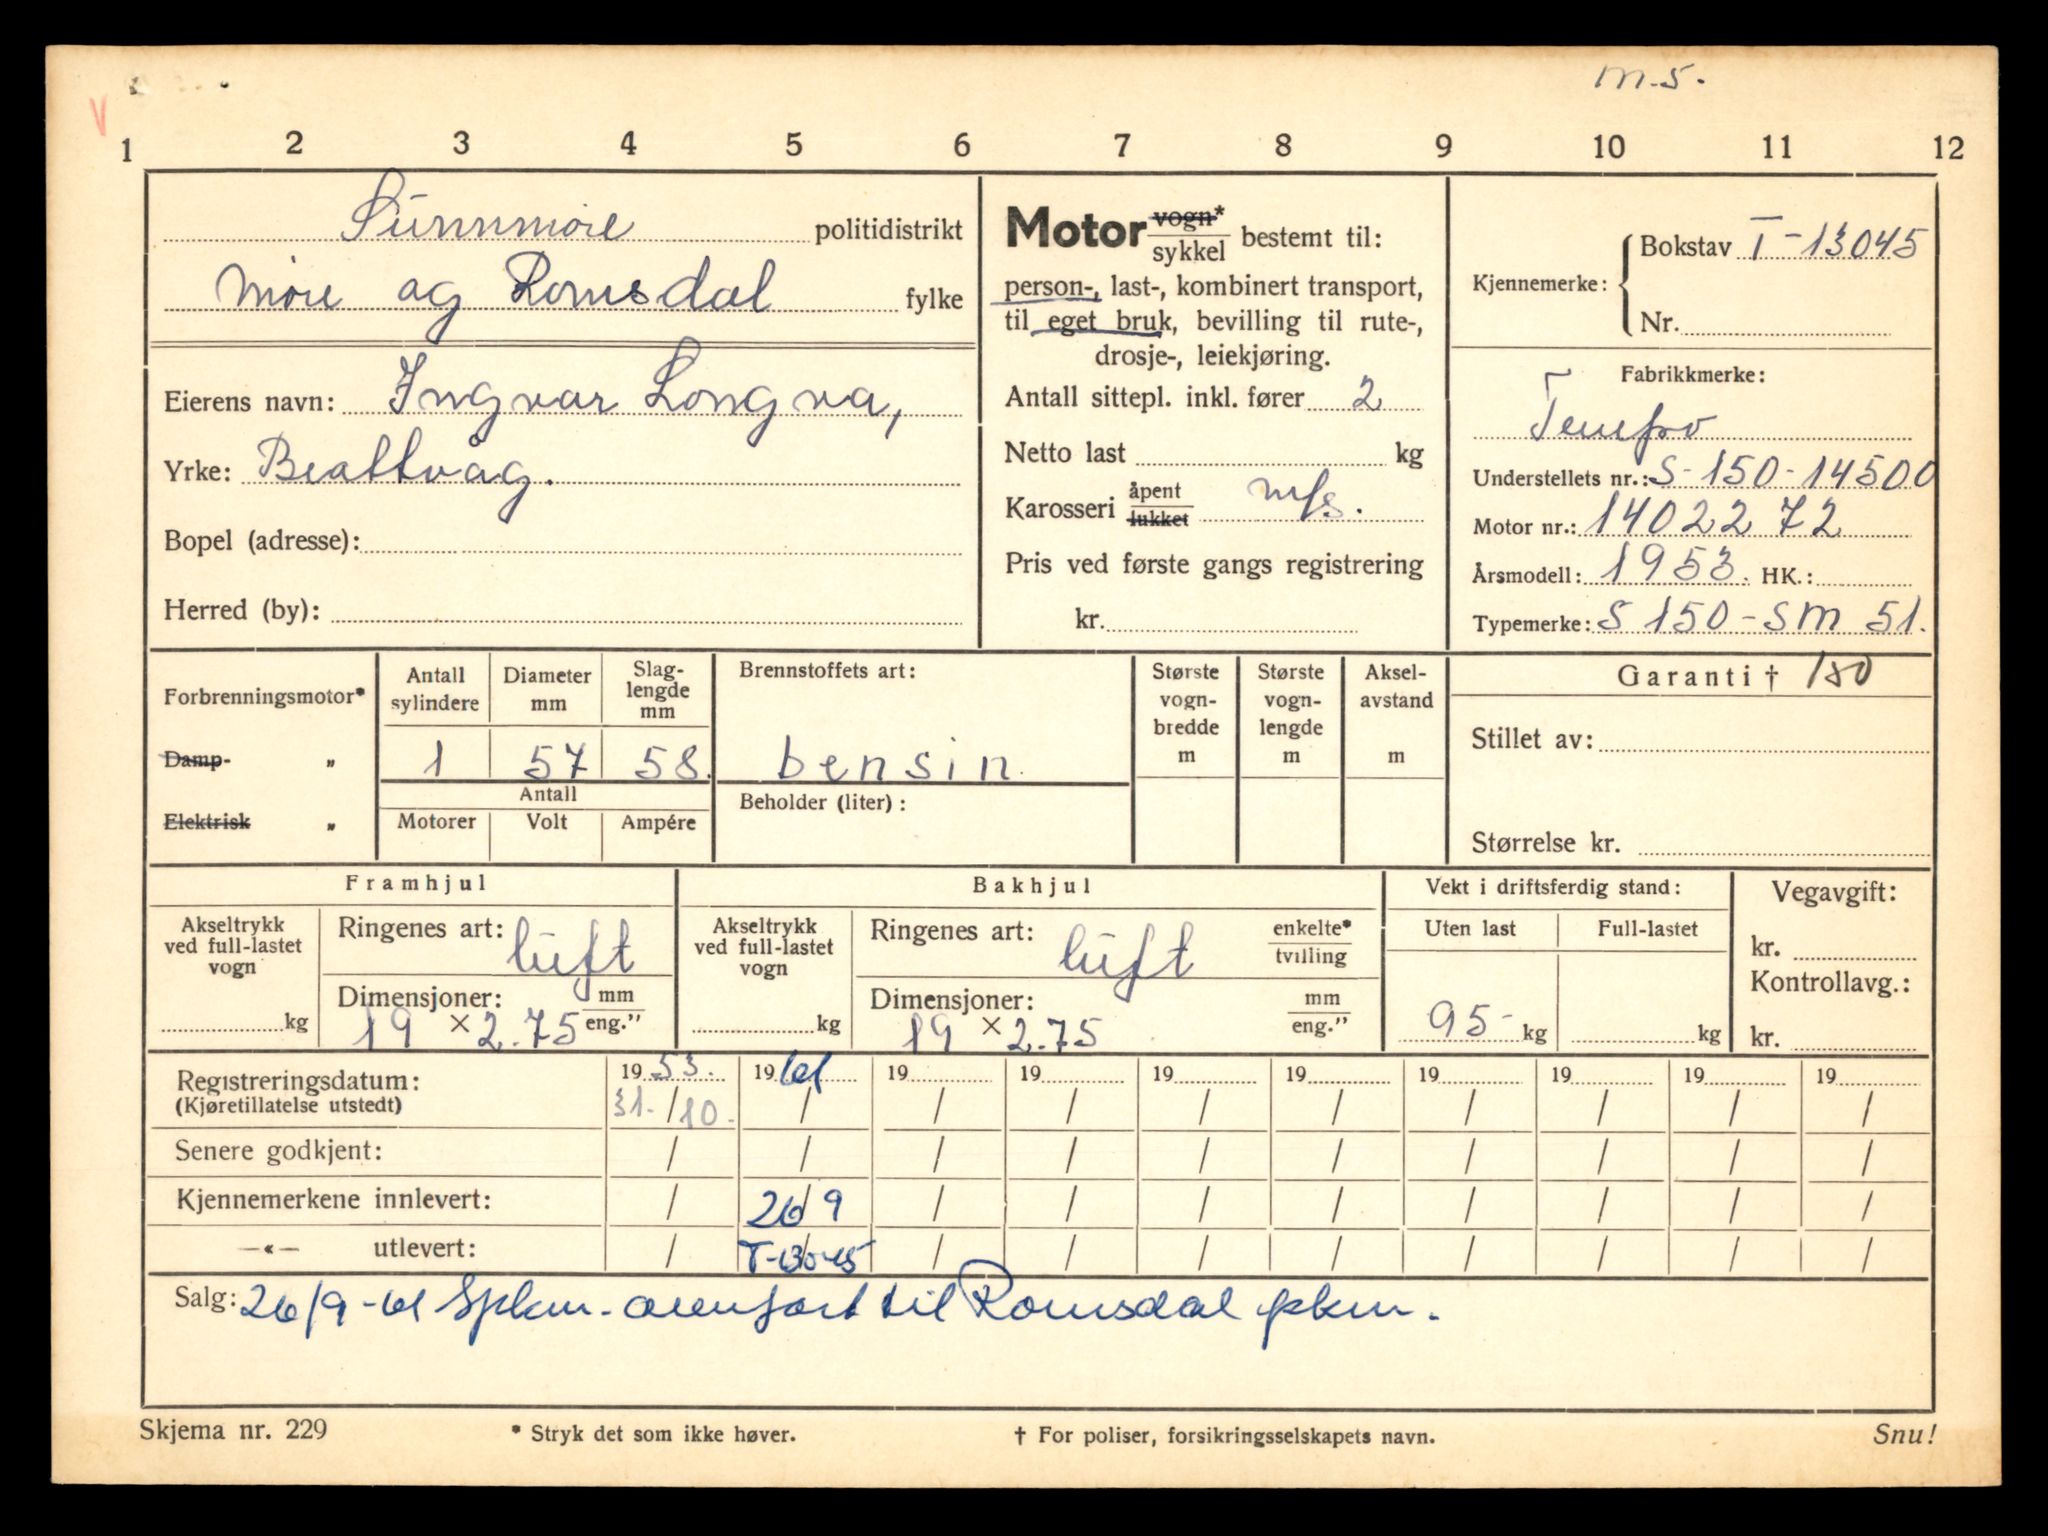 m.5.
V
1 2 3 4 5 6 7 8 9 10 11 12
Sunnmøre politidistrikt
Møre og Romsdal fylke
Eierens navn: Ingvar Longva,
Yrke: Brattvåg.
Bopel (adresse):
Herred (by):
Motor vogn*
sykkel bestemt til:
person-, last-, kombinert transport,
til eget bruk, bevilling til rute-,
drosje-, leiekjøring.
Antall sittepl. inkl. fører 2
Netto last kg
Karosseri åpent
lukket mfs.
Pris ved første gangs registrering
kr.
Kjennemerke: Bokstav T-13045
Nr.
Fabrikkmerke:
Tempo
Understellets nr.: S-150-14500
Motor nr.: 1402272
Årsmodell: 1953. HK.:
Typemerke: S 150-SM 51.
Forbrenningsmotor*
Damp- „
Elektrisk „
Antall sylindere Diameter mm Slag-lengde mm
1 57 58.
Antall
Motorer Volt Ampére
Brennstoffets art:
bensin.
Beholder (liter):
Største vogn-bredde m
Største vogn-lengde m
Aksel-avstand m
Garanti † 150
Stillet av:
Størrelse kr.
Framhjul
Akseltrykk ved full-lastet vogn
kg
Ringenes art: luft
Dimensjoner: mm
19 × 2.75 eng."
Bakhjul
Akseltrykk ved full-lastet vogn
kg
Ringenes art: luft enkelte*
tvilling
Dimensjoner: mm
19 × 2.75 eng."
Vekt i driftsferdig stand:
Uten last Full-lastet
95- kg kg
Vegavgift:
kr.
Kontrollavg.:
kr.
Registreringsdatum: 1953. 1961 19 19 19 19 19 19 19 19
(Kjøretillatelse utstedt) 31./10. / / / / / / / / /
Senere godkjent: / / / / / / / / / /
Kjennemerkene innlevert: / 26/9 / / / / / / / /
—«— utlevert: / T-13045 / / / / / / / /
Salg: 26/9-61 Spkm. overført til Romsdal pkm.
Skjema nr. 229 * Stryk det som ikke høver. † For poliser, forsikringsselskapets navn. Snu!